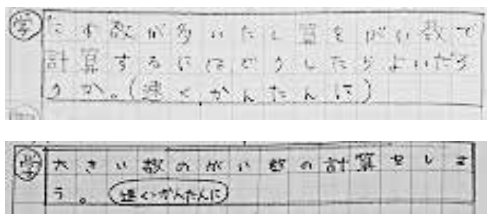 学 たす数が多いたし算をがい数で
計算するにはどうしたらよいだろ
うか。(速く、かんたんに)
学 大きい数のがい数の計算をしよ
う。(速く、かんたんに)